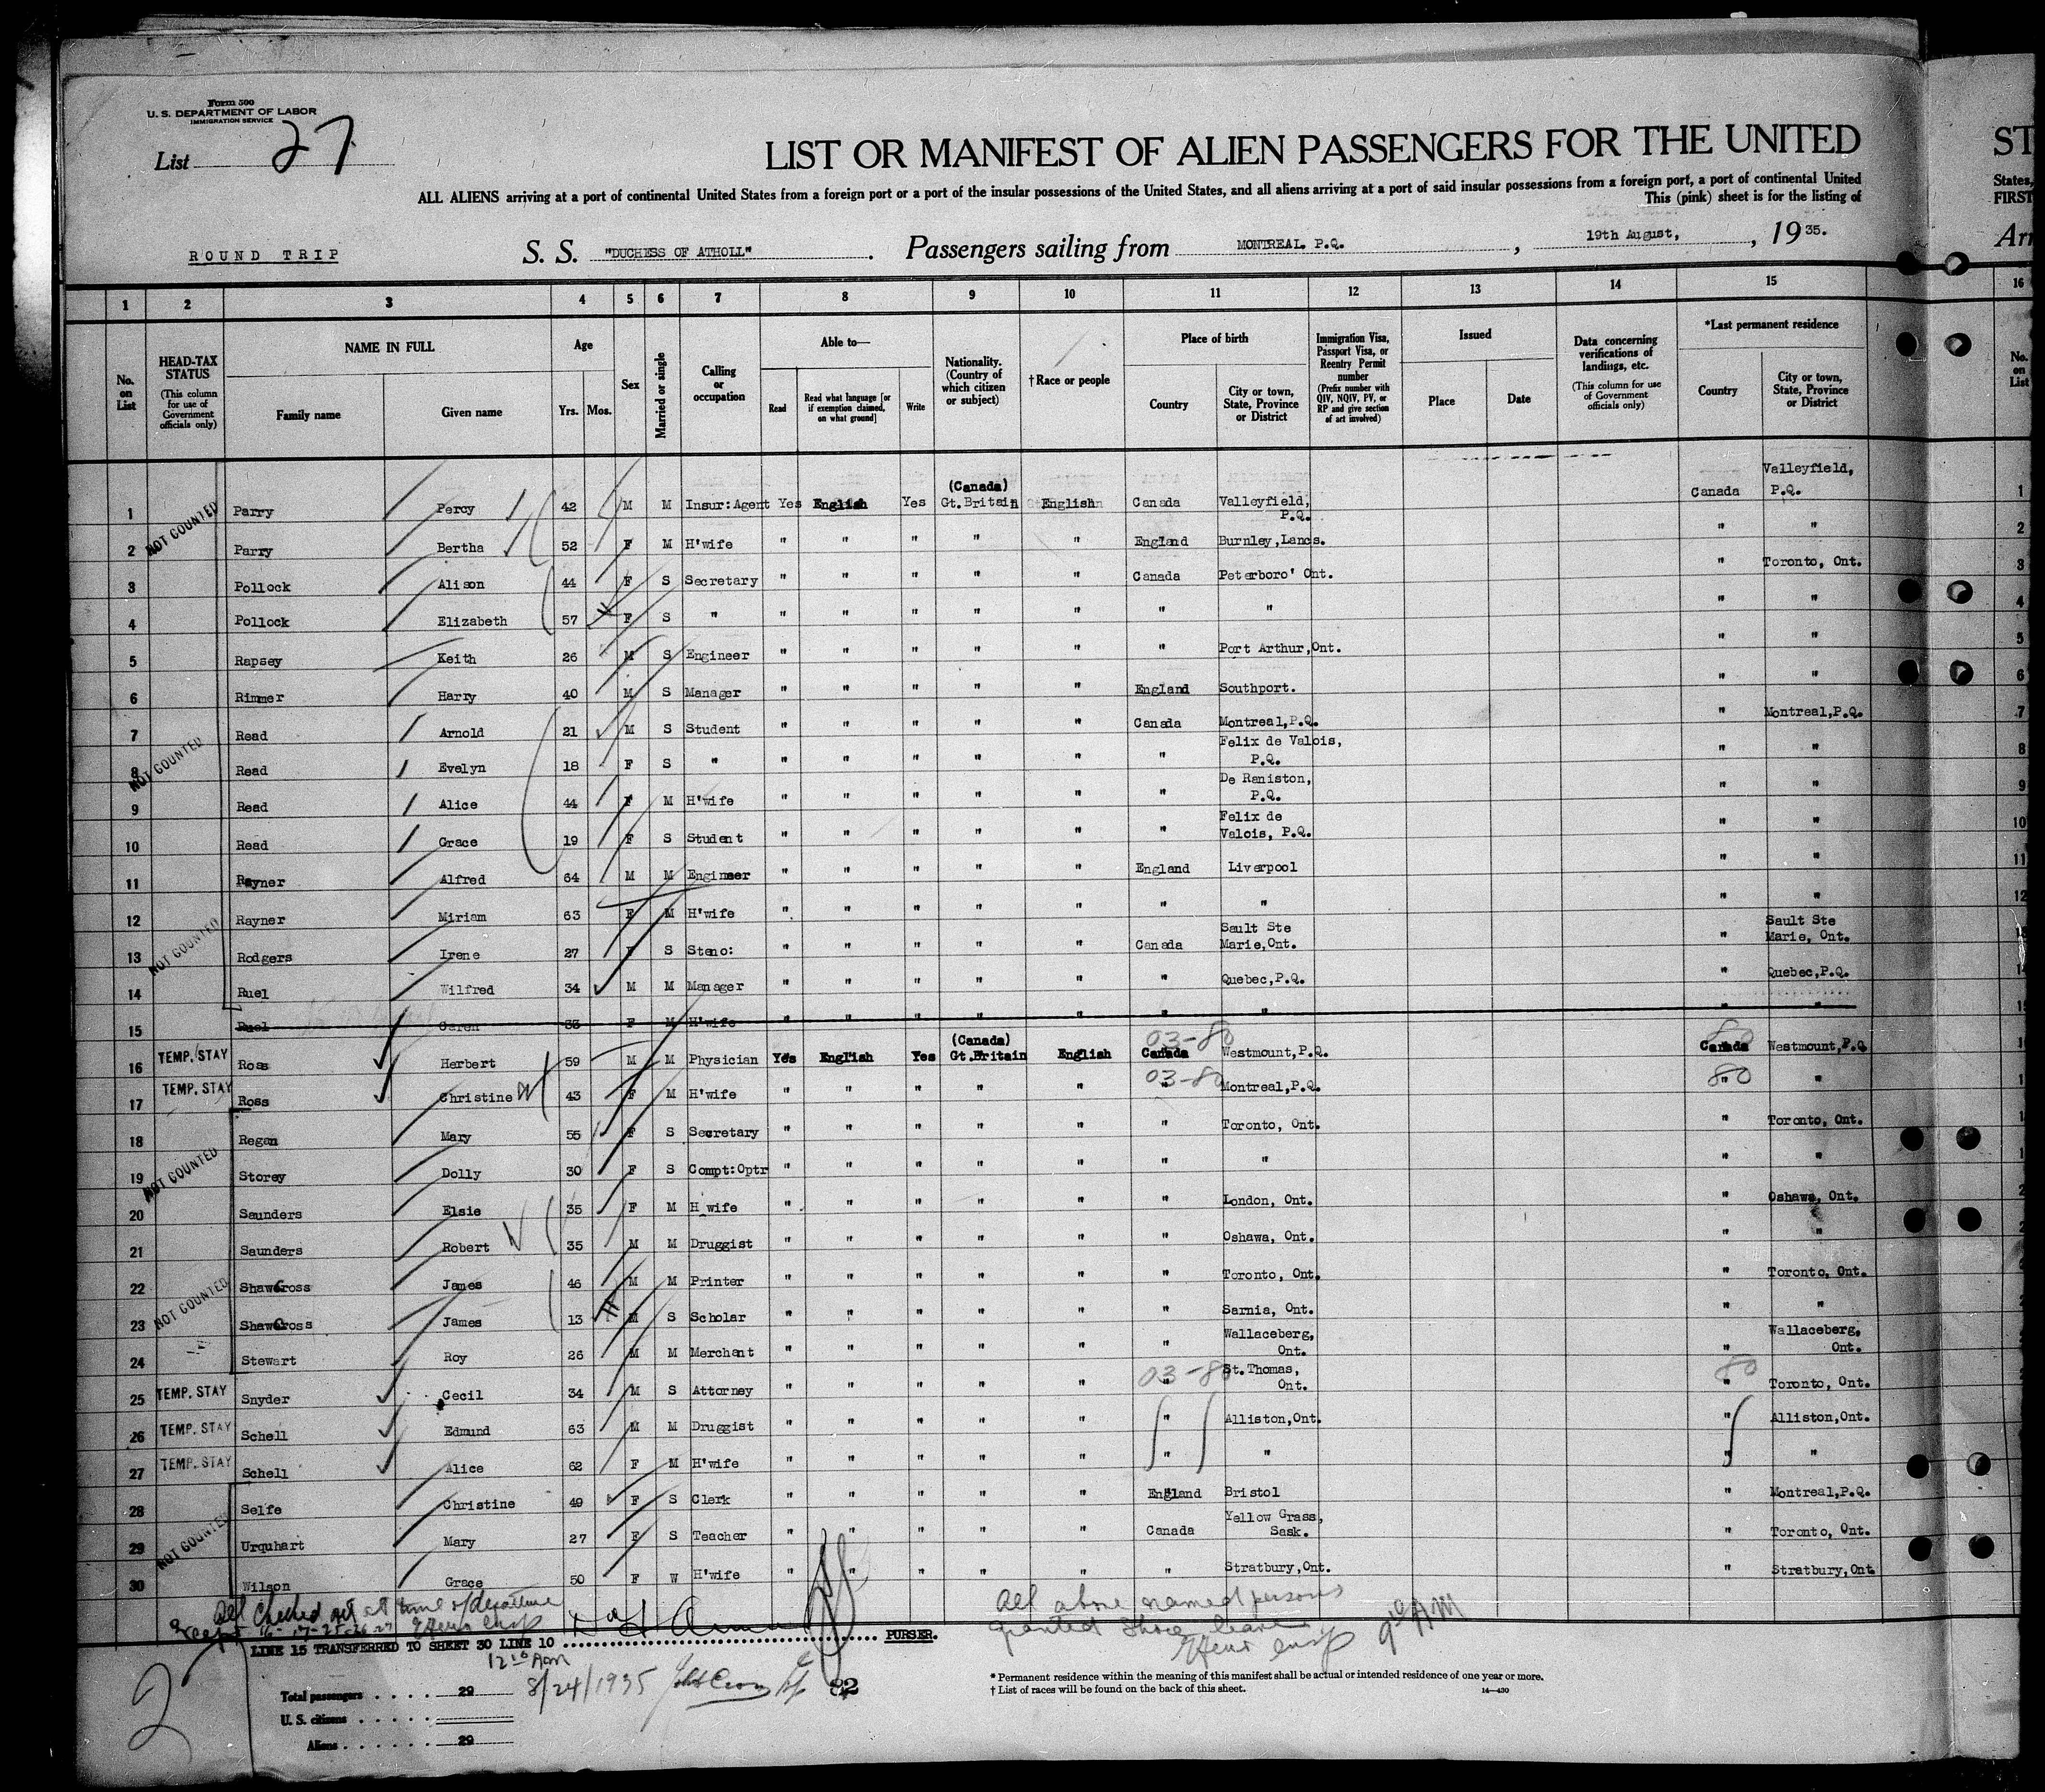 Form 500
U. S. DEPARTMENT OF LABOR
IMMIGRATION SERVICE
List 27
LIST OR MANIFEST OF ALIEN PASSENGERS FOR THE UNITED
ST
ALL ALIENS arriving at a port of continental United States from a foreign port or a port of the insular possessions of the United States, and all aliens arriving at a port of said insular possessions from a foreign port, a port of continental United
States,
This (pink) sheet is for the listing of
FIRST
ROUND TRIP S. S. "DUCHESS OF ATHOLL". Passengers sailing from MONTREAL P.Q. , 19th August, , 1935.
Arr
1 2 3 4 5 6 7 8 9 10 11 12 13 14 15 16
No. on List
HEAD-TAX STATUS (This column for use of Government officials only)
NAME IN FULL Family name Given name
Age Yrs. Mos.
Sex
Married or single
Calling or occupation
Able to— Read Read what language [or if exemption claimed, on what ground] Write
Nationality. (Country of which citizen or subject)
†Race or people
Place of birth Country City or town, State, Province or District
Immigration Visa, Passport Visa, or Reentry Permit number (Prefix number with QIV, NQIV, PV, or RP and give section of act involved)
Issued Place Date
Data concerning verifications of landings, etc. (This column for use of Government officials only)
*Last permanent residence Country City or town, State, Province or District
No. on List
1 Parry Percy 42 M M Insur:Agent Yes English Yes (Canada) Gt.Britain English Canada Valleyfield, P.Q. Canada Valleyfield, P.Q. 1
NOT COUNTED
2 Parry Bertha 52 F M H'wife " " " " " England Burnley,Lancs. " " 2
3 Pollock Alison 44 F S Secretary " " " " " Canada Peterboro' Ont. " Toronto, Ont. 3
4 Pollock Elizabeth 57 F S " " " " " " " " " " 4
5 Rapsey Keith 26 M S Engineer " " " " " " Port Arthur,Ont. " " 5
6 Rimmer Harry 40 M S Manager " " " " " England Southport. " " 6
7 Read Arnold 21 M S Student " " " " " Canada Montreal,P.Q. " Montreal,P.Q. 7
NOT COUNTED
8 Read Evelyn 18 F S " " " " " " " Felix de Valois, P.Q. " " 8
9 Read Alice 44 F M H'wife " " " " " " De Raniston, P.Q. " " 9
10 Read Grace 19 F S Student " " " " " " Felix de Valois, P.Q. " " 10
11 Rayner Alfred 64 M M Engineer " " " " " England Liverpool " " 11
12 Rayner Miriam 63 F M H'wife " " " " " " " " " 12
NOT COUNTED
13 Rodgers Irene 27 F S Steno: " " " " " Canada Sault Ste Marie,Ont. " Sault Ste Marie, Ont.
14 Ruel Wilfred 34 M M Manager " " " " " " Quebec,P.Q. " Quebec,P.Q.
15 Ruel Caren 33 F M H'wife " " " " " " " " " 15
16 TEMP. STAY Ross Herbert 59 M M Physician Yes English Yes (Canada) Gt.Britain English 03-80 Canada Westmount,P.Q. 80 Canada Westmount,P.Q
17 TEMP. STAY Ross Christine 43 F M H'wife " " " " " 03-80 " Montreal,P.Q. 80 " "
18 Regan Mary 55 F S Secretary " " " " " " Toronto, Ont. " Toronto, Ont.
NOT COUNTED
19 Storey Dolly 30 F S Compt:Optr " " " " " " " " "
20 Saunders Elsie 35 F M H wife " " " " " " London, Ont. " Oshawa, Ont.
21 Saunders Robert 35 M M Druggist " " " " " " Oshawa, Ont. " "
22 ShawCross James 46 M M Printer " " " " " " Toronto, Ont. " Toronto, Ont.
NOT COUNTED
23 ShawCross James 13 M S Scholar " " " " " " Sarnia, Ont. " "
24 Stewart Roy 26 M M Merchant " " " " " " Wallaceberg, Ont. " Wallaceberg, Ont.
25 TEMP. STAY Snyder Cecil 34 M S Attorney " " " " " 03-80 " St.Thomas, Ont. 80 " Toronto, Ont.
26 TEMP. STAY Schell Edmund 63 M M Druggist " " " " " " Alliston,Ont. " Alliston,Ont.
27 TEMP. STAY Schell Alice 62 F M H'wife " " " " " " " " "
28 Selfe Christine 49 F S Clerk " " " " " England Bristol " Montreal,P.Q.
NOT COUNTED
29 Urquhart Mary 27 F S Teacher " " " " " Canada Yellow Grass, Sask. " Toronto, Ont.
30 Wilson Grace 50 F W H'wife " " " " " " Stratbury,Ont. " Stratbury,Ont
All checked out at time of departure
except 16-17-25-26-27
All above named persons
granted shore leave 9 AM
LINE 15 TRANSFERRED TO SHEET 30 LINE 10 PURSER.
12 AM
8/24/1935
32
2
Total passengers . . . . . 29
U. S. citizens . . . . .
Aliens . . . . . . 29
* Permanent residence within the meaning of this manifest shall be actual or intended residence of one year or more.
† List of races will be found on the back of this sheet. 14—430